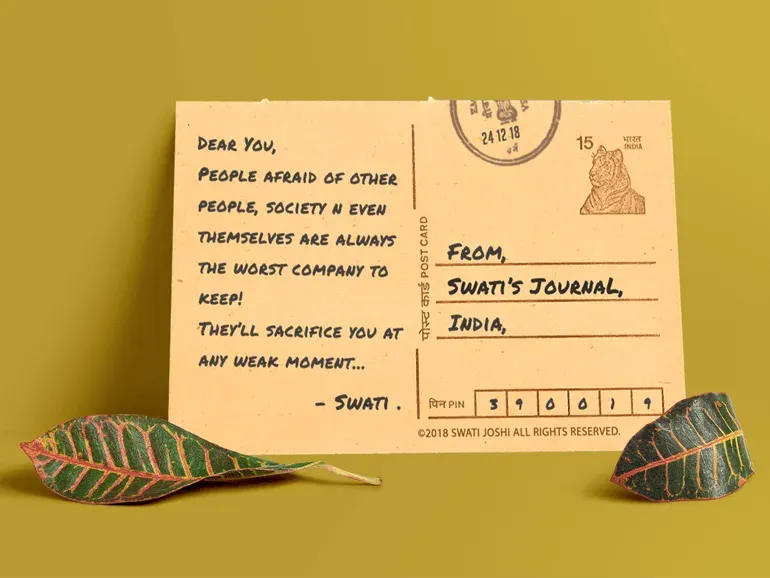 Dear You,
People afraid of other
people, society n even
themselves are always
the worst company to
keep!
They'll sacrifice you at
any weak moment...
- Swati .
24 12 18
15 भारत
INDIA
पोस्ट कार्ड POST CARD
From,
Swati's Journal,
India,
पिन PIN 3 9 0 0 1 9
©2018 SWATI JOSHI ALL RIGHTS RESERVED.